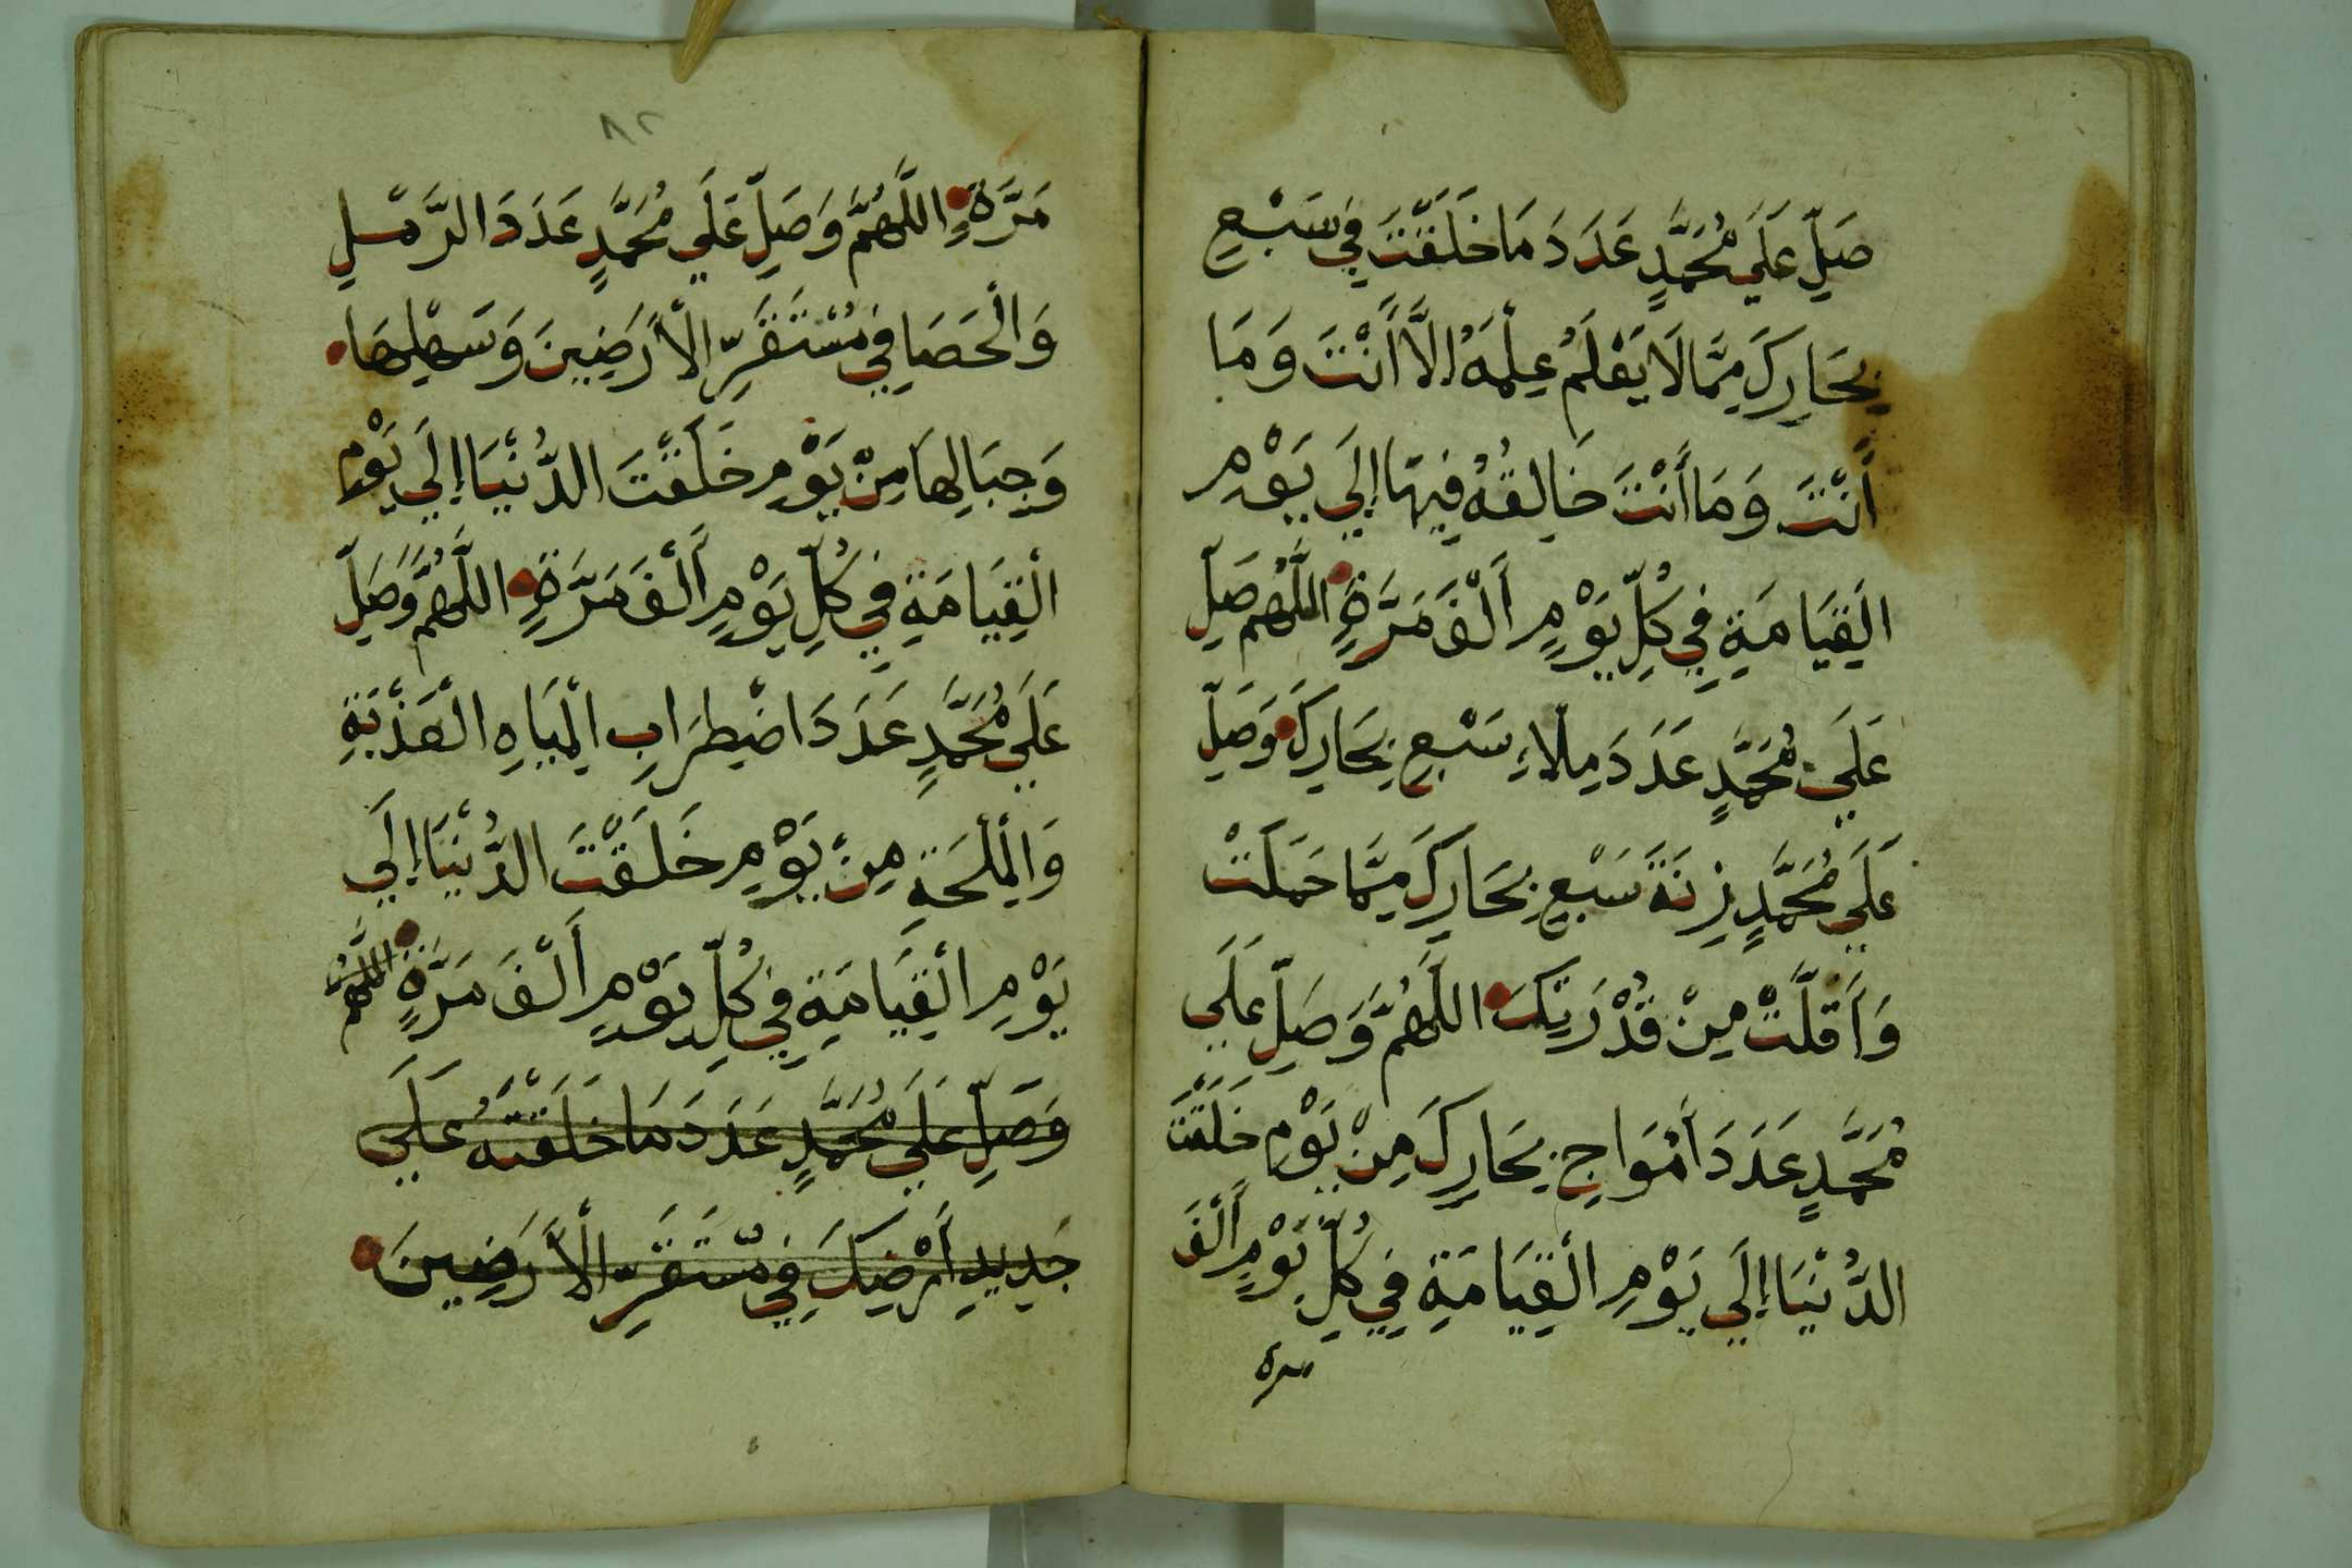 صَلِّ عَلَي مُحَمَّدٍ عَدَدَ مَا خَلَقْتَ فِي سَبْعِ
بِحَارِكَ مِمَّا لَا يَعْلَمُ عِلْمَهُ إِلَّا أَنْتَ وَمَا
أَنْتَ وَمَا أَنْتَ خَالِقُهُ فِيهَا إِلَي يَوْمِ
الْقِيَامَةِ فِي كُلِّ يَوْمٍ أَلْفَ مَرَّةٍ اللَّهُمَّ صَلِّ
عَلَي مُحَمَّدٍ عَدَدَ مِلَاءِ سَبْعِ بِحَارِكَ وَصَلِّ
عَلَي مُحَمَّدٍ زِنَةَ سَبْعِ بِحَارِكَ مِمَّا حَمَلَتْ
وَأَقَلَّتْ مِنْ قُدْرَتِكَ اللَّهُمَّ وَصَلِّ عَلَي
مُحَمَّدٍ عَدَدَ أَمْوَاجِ بِحَارِكَ مِنْ يَوْمِ خَلَقْتَ
الدُّنْيَا إِلَي يَوْمِ الْقِيَامَةِ فِي كُلِّ يَوْمٍ أَلْفَ
مرة
٨٢
مَرَّةٍ اللَّهُمَّ وَصَلِّ عَلَي مُحَمَّدٍ عَدَدَ الرَّمْلِ
وَالْحَصَا فِي مُسْتَقَرِّ الْأَرَضِينَ وَسَهْلِهَا
وَجِبَالِهَا مِنْ يَوْمِ خَلَقْتَ الدُّنْيَا إِلَي يَوْمِ
الْقِيَامَةِ فِي كُلِّ يَوْمٍ أَلْفَ مَرَّةٍ اللَّهُمَّ وَصَلِّ
عَلَي مُحَمَّدٍ عَدَدَ اضْطِرَابِ الْمِيَاهِ الْعَذْبَةِ
وَالْمِلْحَةِ مِنْ يَوْمِ خَلَقْتَ الدُّنْيَا إِلَي
يَوْمِ الْقِيَامَةِ فِي كُلِّ يَوْمٍ أَلْفَ مَرَّةٍ اللَّهُمَّ
وَصَلِّ عَلَي مُحَمَّدٍ عَدَدَ مَا خَلَقْتَهُ عَلَي
جَدِيدِ أَرْضِكَ فِي مُسْتَقَرِّ الْأَرَضِينَ